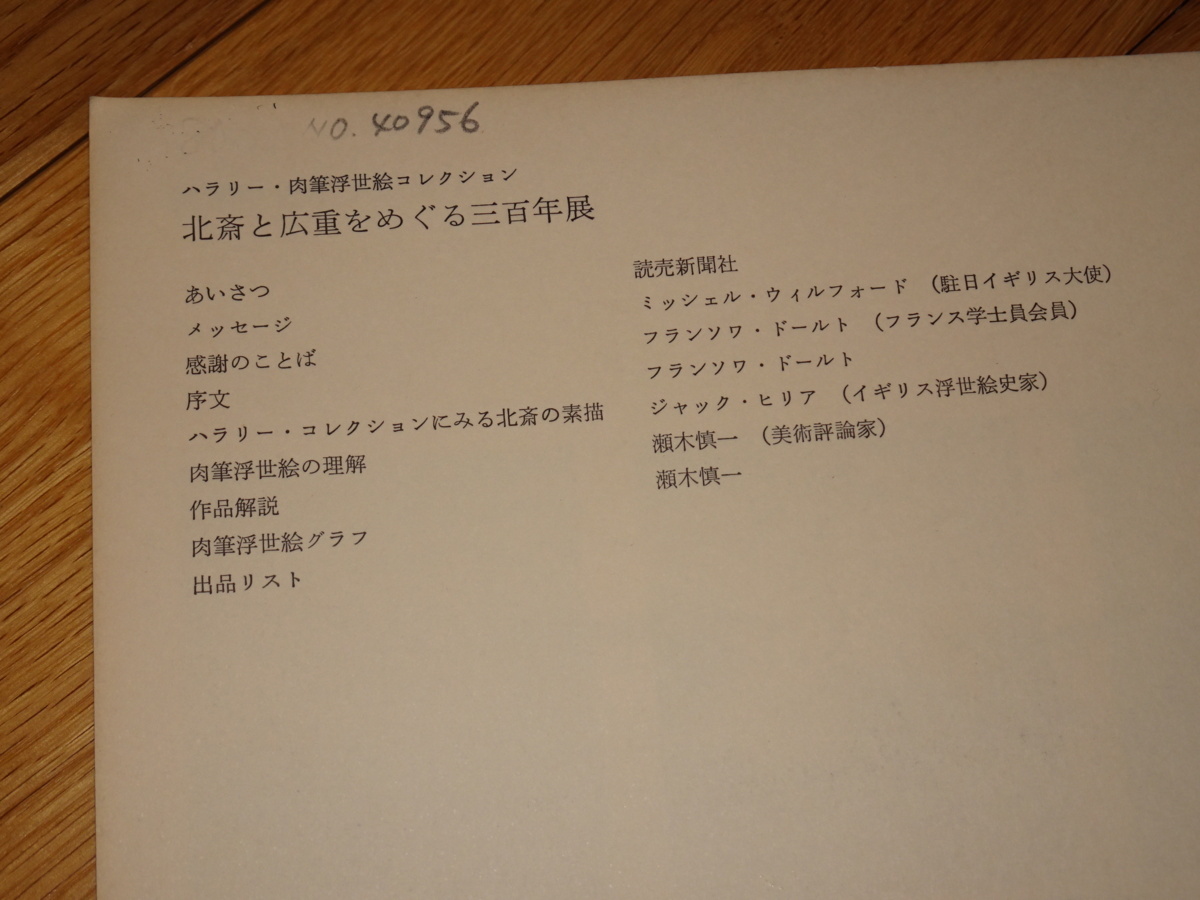 NO. 40956
ハラリー・肉筆浮世絵コレクション
北斎と広重をめぐる三百年展
あいさつ 読売新聞社
メッセージ ミッシェル・ウィルフォード (駐日イギリス大使)
感謝のことば フランソワ・ドールト (フランス学士員会員)
序文 フランソワ・ドールト
ハラリー・コレクションにみる北斎の素描 ジャック・ヒリア (イギリス浮世絵史家)
肉筆浮世絵の理解 瀬木慎一 (美術評論家)
作品解説 瀬木慎一
肉筆浮世絵グラフ
出品リスト